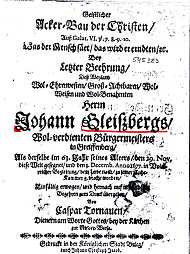 Geistlicher
Acker-Bau der Christen/
Auß Galat. VI. ℣. 7. 8. 9. 10.
Was der Mensch säet/ das wird er erndten/ ec.
Bey
Letzter Beehrung/
Deß Weyland
Wol-Ehrenvesten/ Groß-Achtbaren/ Wol-
Weisen und Wol-Benambten
Herrn
Johann Gleißbergs/
Wol-verdienten Bürgermeisters
in Greiffenberg/
Als derselbe im 65. Jahr seines Alters/ den 29. Nov.
diese Welt gesegnet/ und den 4. Decemb. in Volck-
reicher Begleitung/ dem Leibe nach/ in seine Ruhe-
Kammer gebracht worden/
Einfältig erwogen/ und hernach auf
Begehren zum Druck übergeben/
Von
Caspar Tornauen/
Dienern am Worte Gottes/ bey der Kirchen
zur
Gedruckt in der Königlichen Stadt Brieg/
durch Johann Christoph Jacob.